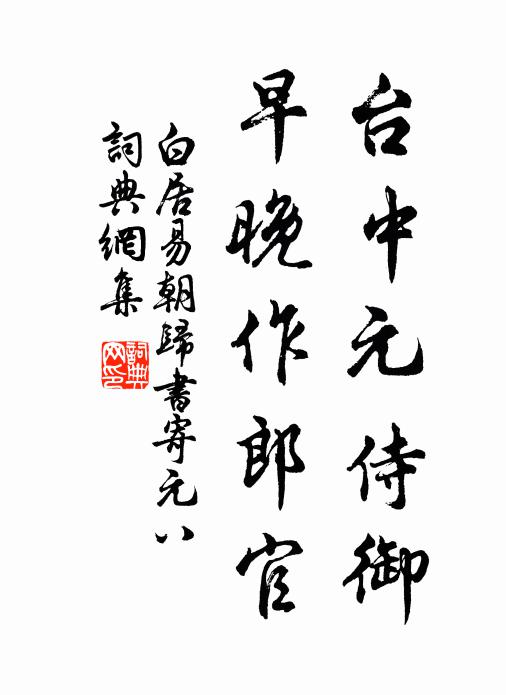 台中元侍御
早晚作郎官
白居易朝歸書寄元八
詞典網集
詞典
网印